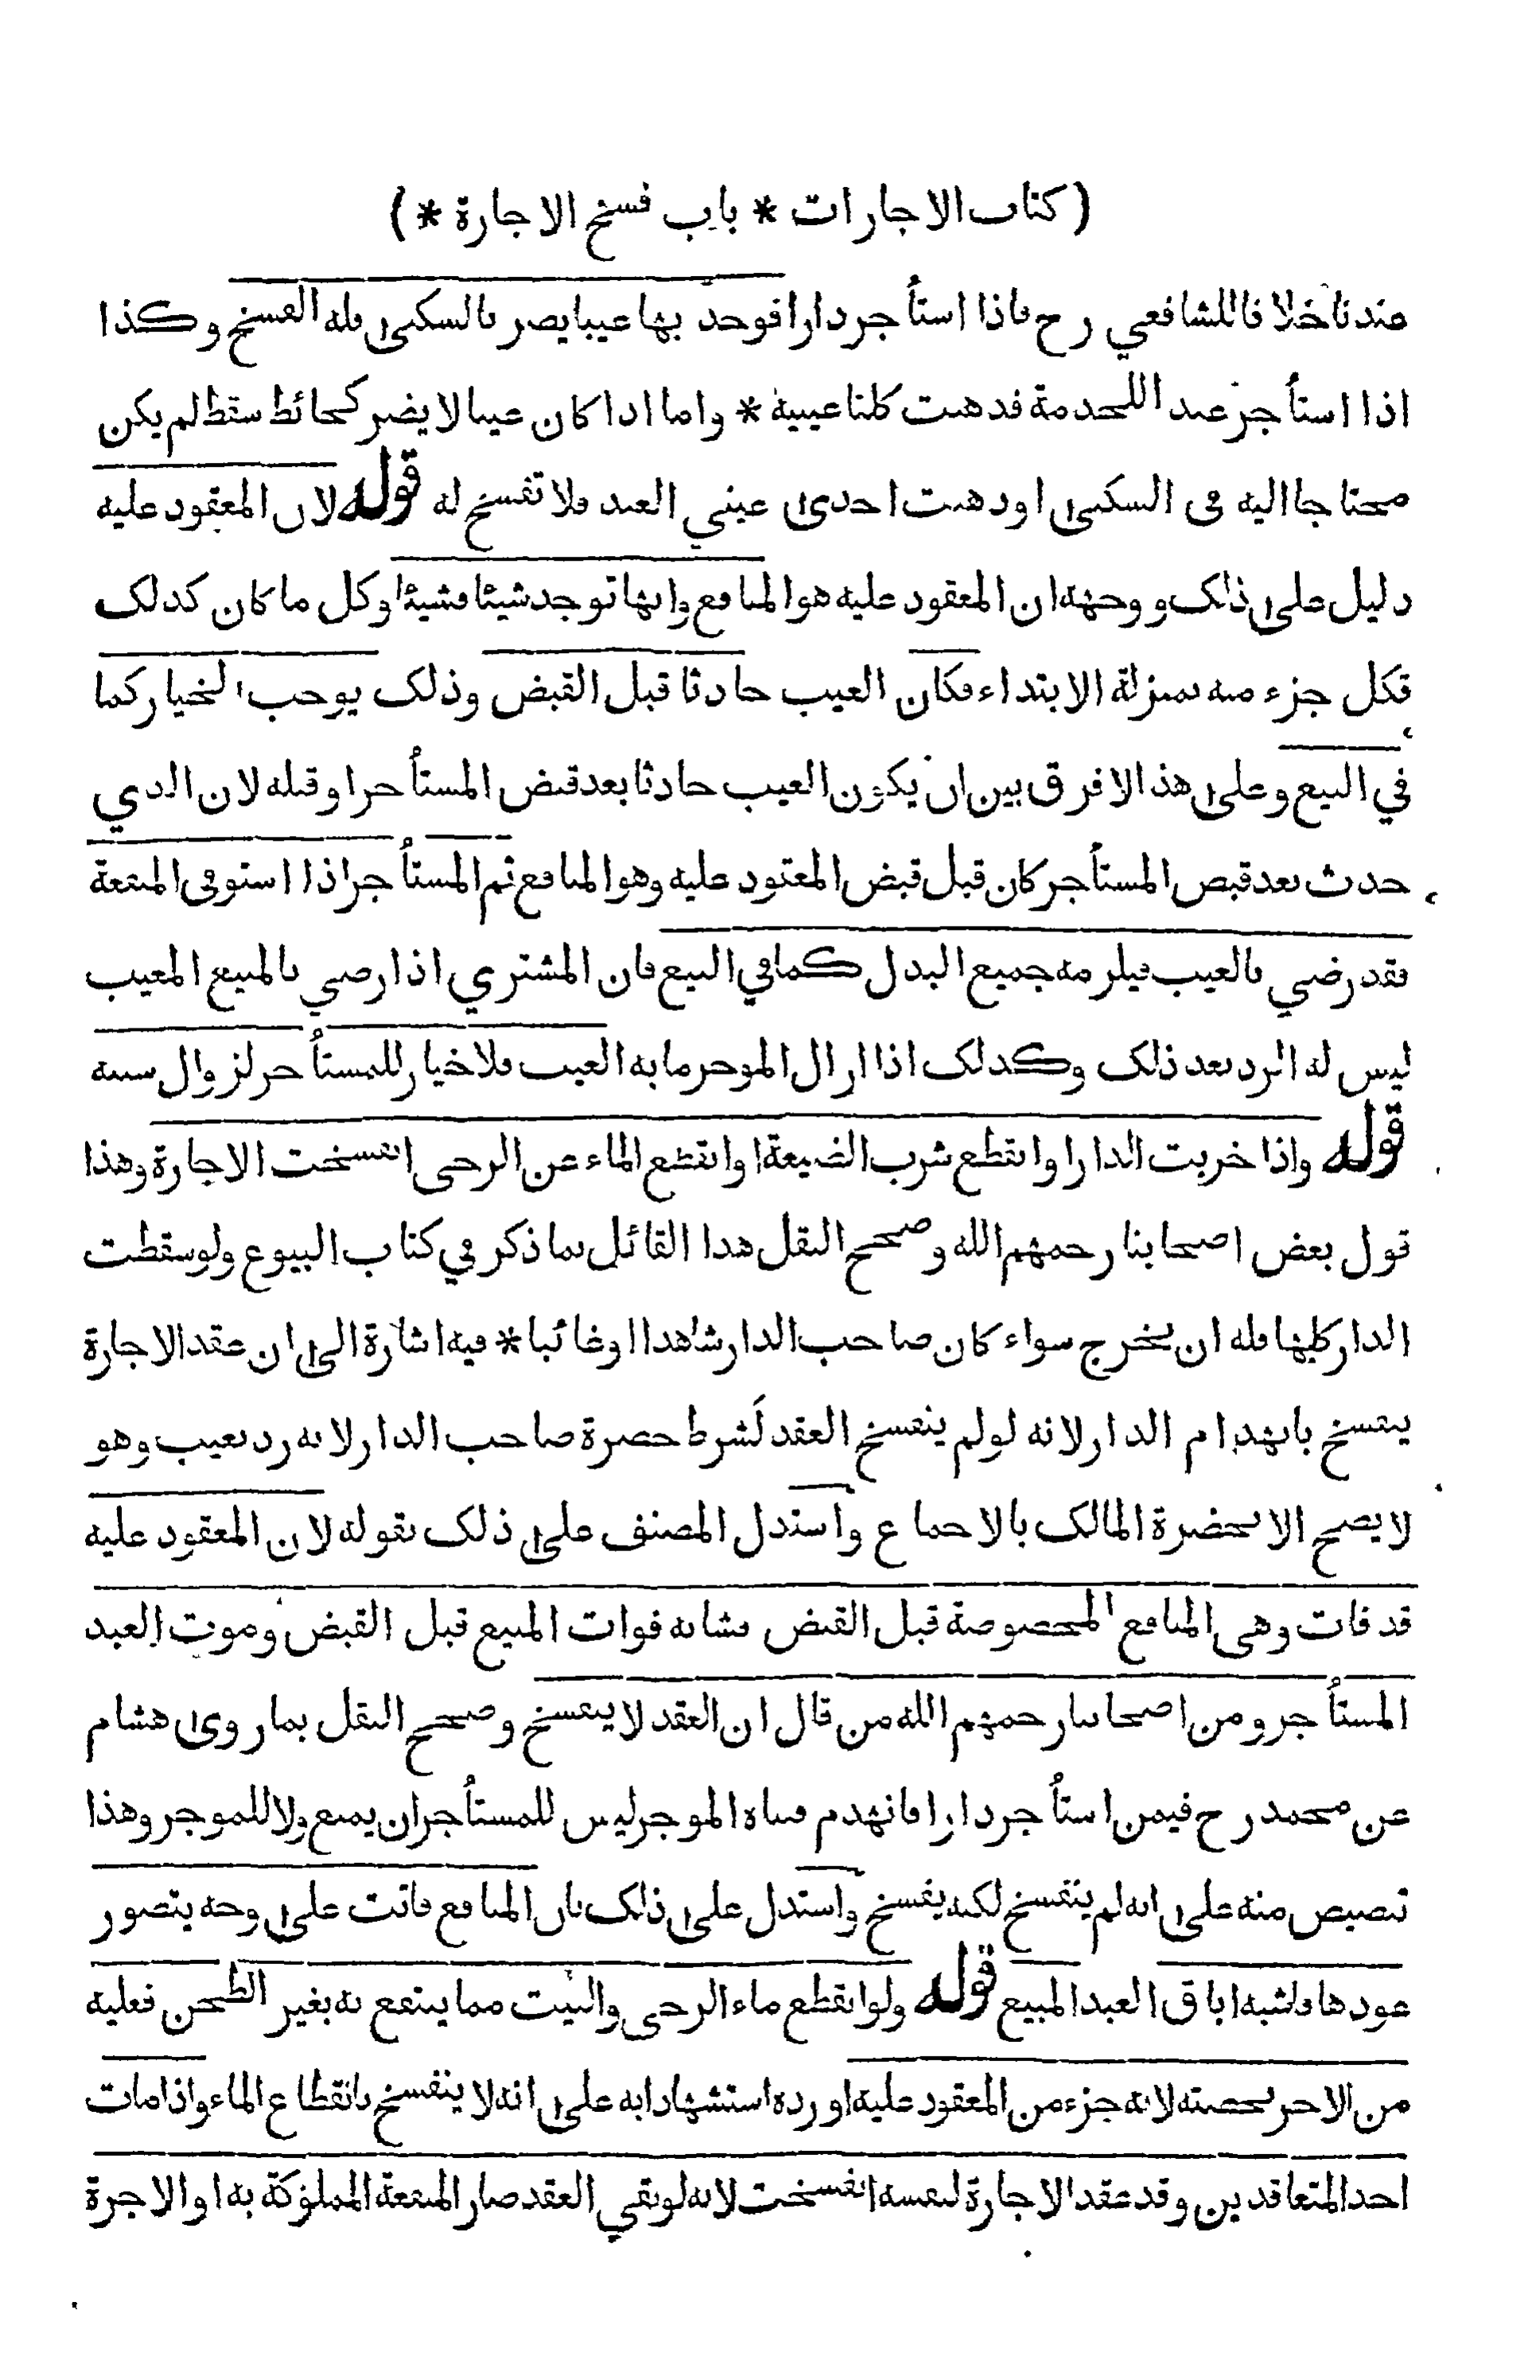 ( كتاب الاجارات * باب فسخ الاجارة * )
عندنا خلافا للشافعي رح فاذا استأجر دارا فوجد بها عيبا يضر بالسكنى فله الفسخ وكذا
اذا استأجر عبدا للخدمة فذهبت كلتا عينيه * واما اذا كان عيبا لا يضر كحائط سقط لم يكن
محتاجا اليه في السكنى او ذهبت احدى عيني العبد فلا تفسخ له قوله لان المعقود عليه
دليل على ذلك ووجهه ان المعقود عليه هو المنافع وانها توجد شيئا فشيئا وكل ما كان كذلك
فكل جزء منه بمنزلة الابتداء فكان العيب حادثا قبل القبض وذلك يوجب الخيار كما
في البيع وعلى هذا لا فرق بين ان يكون العيب حادثا بعد قبض المستأجر او قبله لان الذي
حدث بعد قبض المستأجر كان قبل قبض المعقود عليه وهو المنافع ثم المستأجر اذا استوفى المنفعة
فقد رضي بالعيب فيلزمه جميع البدل كما في البيع فان المشتري اذا رضي بالمبيع المعيب
ليس له الرد بعد ذلك وكذلك اذا ازال الموجر ما به العيب فلا خيار للمستأجر لزوال سببه
قوله واذا خربت الدار او انقطع شرب الضيعة او انقطع الماء عن الرحى انفسخت الاجارة وهذا
قول بعض اصحابنا رحمهم الله وصحح النقل هذا القائل بما ذكر في كتاب البيوع ولو سقطت
الدار كلها فله ان يخرج سواء كان صاحب الدار شاهدا او غائبا * فيه اشارة الى ان عقد الاجارة
ينفسخ بانهدام الدار لانه لو لم ينفسخ العقد لشرط حضرة صاحب الدار لانه رد بعيب وهو
لا يصح الا بحضرة المالك بالاجماع واستدل المصنف على ذلك بقوله لان المعقود عليه
قد فات وهي المنافع المخصوصة قبل القبض فشابه فوات المبيع قبل القبض وموت العبد
المستأجر ومن اصحابنا رحمهم الله من قال ان العقد لا ينفسخ وصحح النقل بما روى هشام
عن محمد رح فيمن استأجر دارا فانهدم فبناه الموجر ليس للمستأجر ان يمنع ولا للموجر وهذا
تنصيص منه على انه لم ينفسخ لكنه يفسخ واستدل على ذلك بان المنافع فاتت على وجه يتصور
عودها فاشبه اباق العبد المبيع قوله ولو انقطع ماء الرحى والبيت مما ينتفع به بغير الطحن فعليه
من الاجر بحصته لانه جزء من المعقود عليه اورده استشهادا به على انه لا ينفسخ بانقطاع الماء واذا مات
احد المتعاقدين وقد عقد الاجارة لنفسه انفسخت لانه لو بقي العقد صار المنفعة المملوكة به او الاجرة